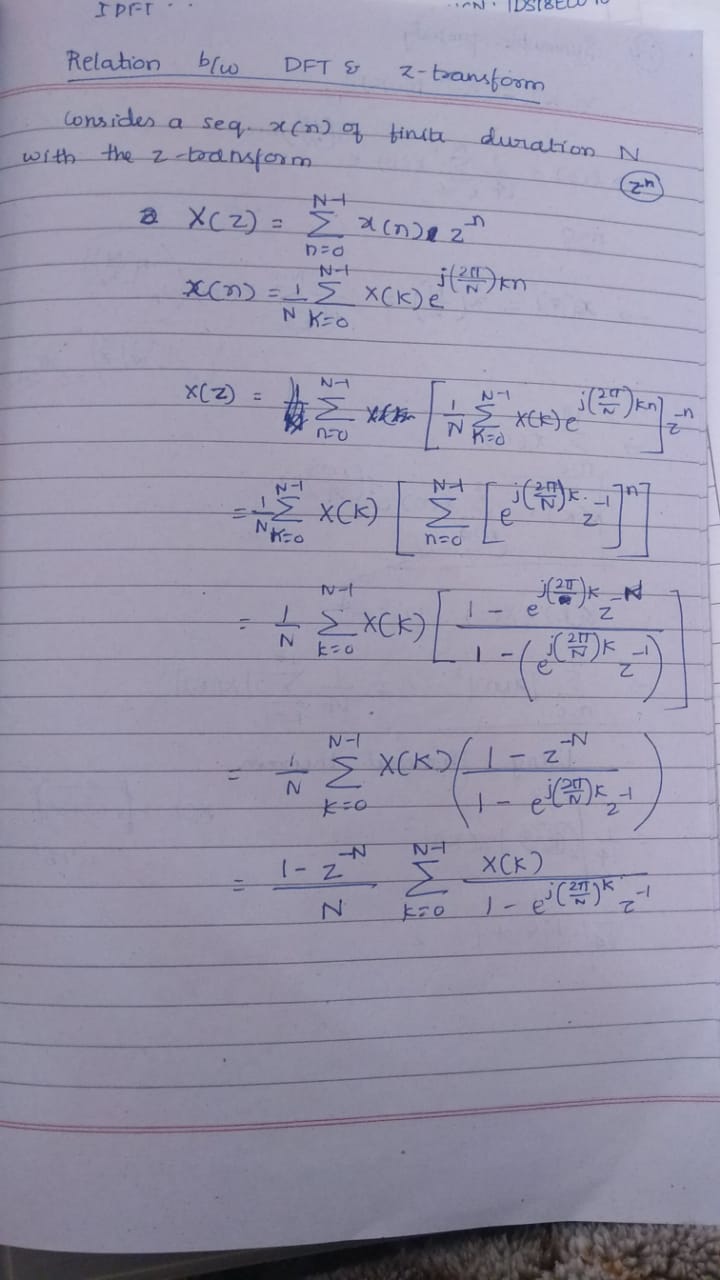 IDFT
Relation b/w DFT & z-transform
Consider a seq. x(n) of finite duration N
with the z-transform
zⁿ
X(z) = Σ_{n=0}^{N-1} x(n) z^{-n}
x(n) = 1/N Σ_{K=0}^{N-1} X(K) e^{j(2π/N)kn}
X(z) = Σ_{n=0}^{N-1} [1/N Σ_{K=0}^{N-1} X(K) e^{j(2π/N)kn}] z^{-n}
= 1/N Σ_{K=0}^{N-1} X(K) [Σ_{n=0}^{N-1} [e^{j(2π/N)k} · z^{-1}]^n]
= 1/N Σ_{k=0}^{N-1} X(K) [(1 - e^{j(2π)k} z^{-N}) / (1 - (e^{j(2π/N)k} z^{-1}))]
= 1/N Σ_{k=0}^{N-1} X(K) ((1 - z^{-N}) / (1 - e^{j(2π/N)k} z^{-1}))
= (1 - z^{-N})/N Σ_{k=0}^{N-1} X(K) / (1 - e^{j(2π/N)k} z^{-1})